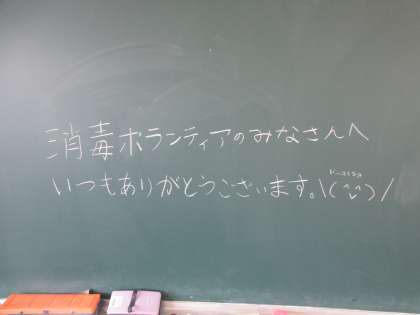 消毒ボランティアのみなさんへ
いつもありがとうございます。\(^ᵕ^)/